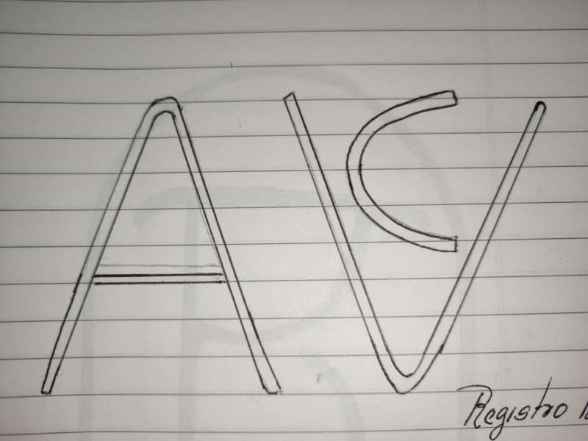 AVC
Registro